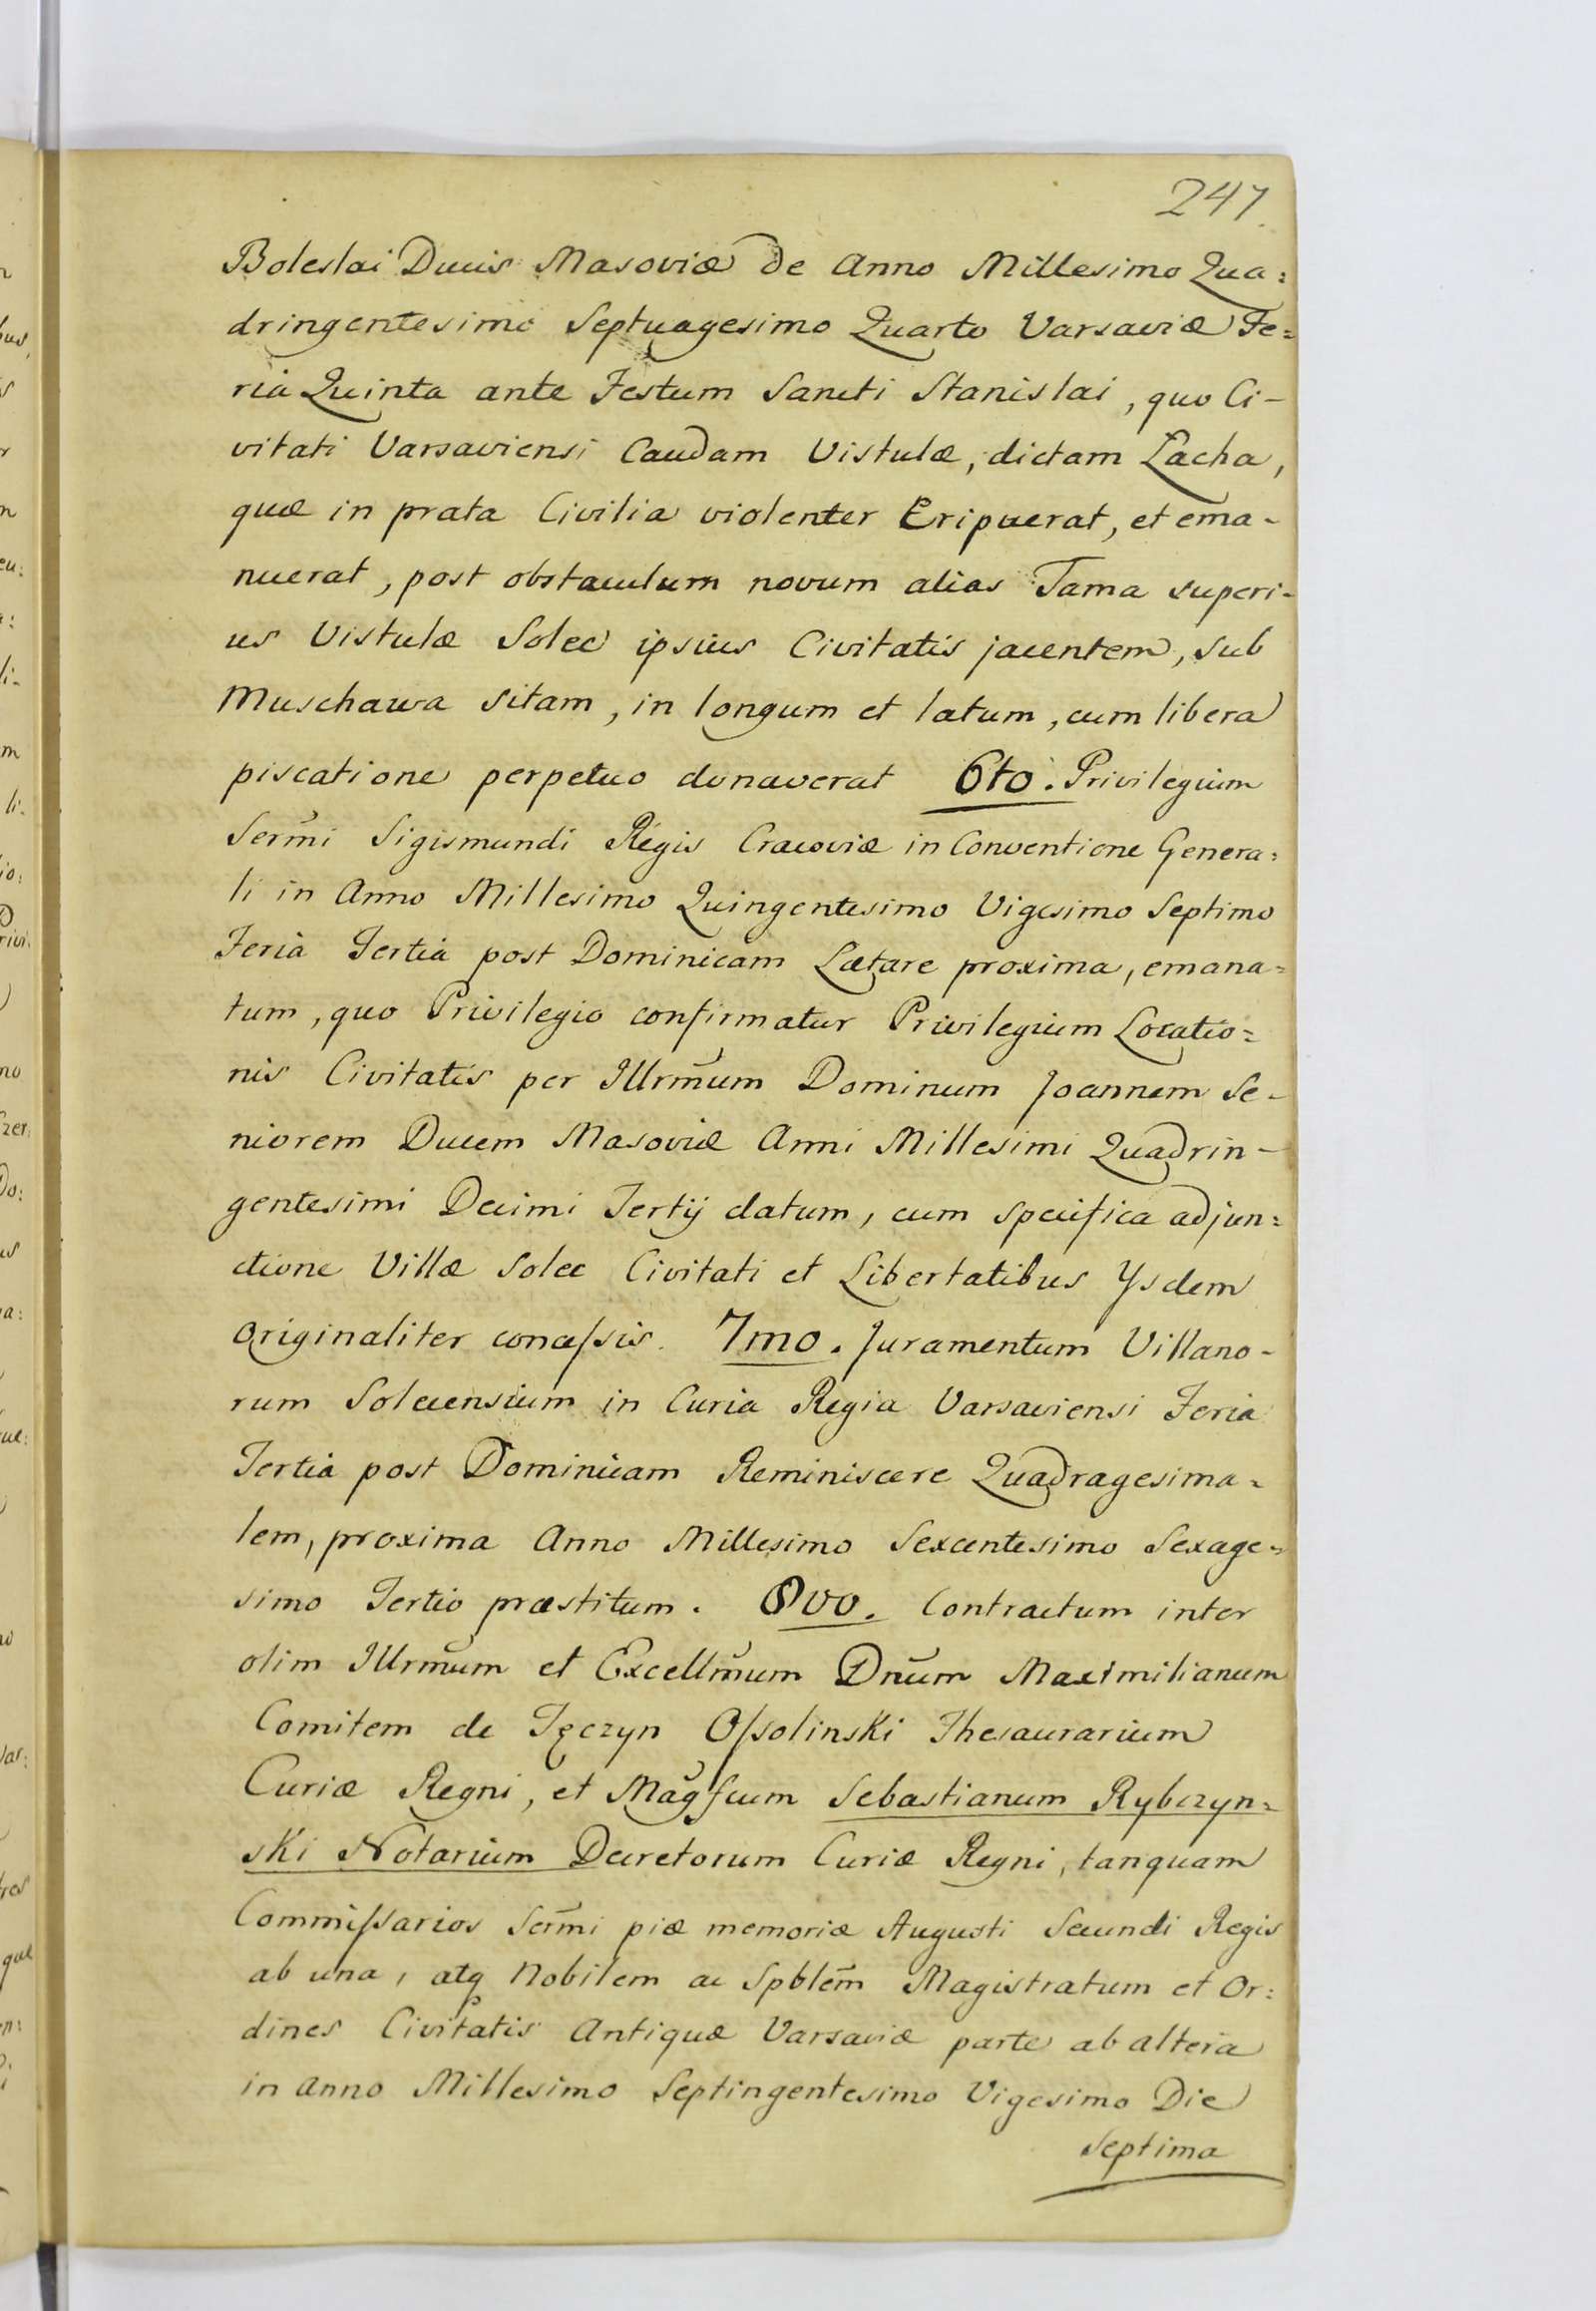 247.
Boleslai Ducis Masoviæ de Anno Millesimo Qua:
dringentesimo Septuagesimo Quarto Varsaviæ Fe=
ria Quinta ante Festum Sancti Stanislai, quo Ci-
vitati Varsaviensi Caudam Vistulæ, dictam Łacha,
quæ in prata Civilia violenter Eripuerat, et ema-
nuerat, post obstaculum novum alias Tama superi-
us Vistulæ Solec ipsius Civitatis jacentem, sub
Muschawa sitam, in longum et latum, cum libera
piscatione perpetuo donaverat 6to. Privilegium
Serm̃i Sigismundi Regis Cracoviæ in Conventione Genera:
li in Anno Millesimo Quingentesimo Vigesimo Septimo
Feria Tertia post Dominicam Lætare proxima, emana=
tum, quo Privilegio confirmatur Privilegium Locatio=
nis Civitatis per Illrm̃um Dominum Joannem Se-
niorem Ducem Masoviæ Anni Millesimi Quadrin-
gentesimi Decimi Tertij datum, cum specifica adjun=
ctione Villæ Solec Civitati et Libertatibus Ysdem
originaliter concessis. 7mo. Juramentum Villano-
rum Solecensium in Curia Regia Varsaviensi Feria
Tertia post Dominicam Reminiscere Quadragesima=
lem, proxima Anno Millesimo Sexcentesimo Sexage=
simo Tertio præstitum. 8vo. Contractum inter
olim Illrm̃um et Excellm̃um Dnũm Maximilianum
Comitem de Tęczyn Ossolinski Thesaurarium
Curiæ Regni, et Magfcum Sebastianum Rybczyn=
ski Notarium Decretorum Curiæ Regni, tanquam
Commissarios Serm̃i piæ memoriæ Augusti Secundi Regis
ab una, atq Nobilem ac Spblem̃ Magistratum et Or:
dines Civitatis Antiquæ Varsaviæ parte ab altera
in Anno Millesimo Septingentesimo Vigesimo Die
Septima